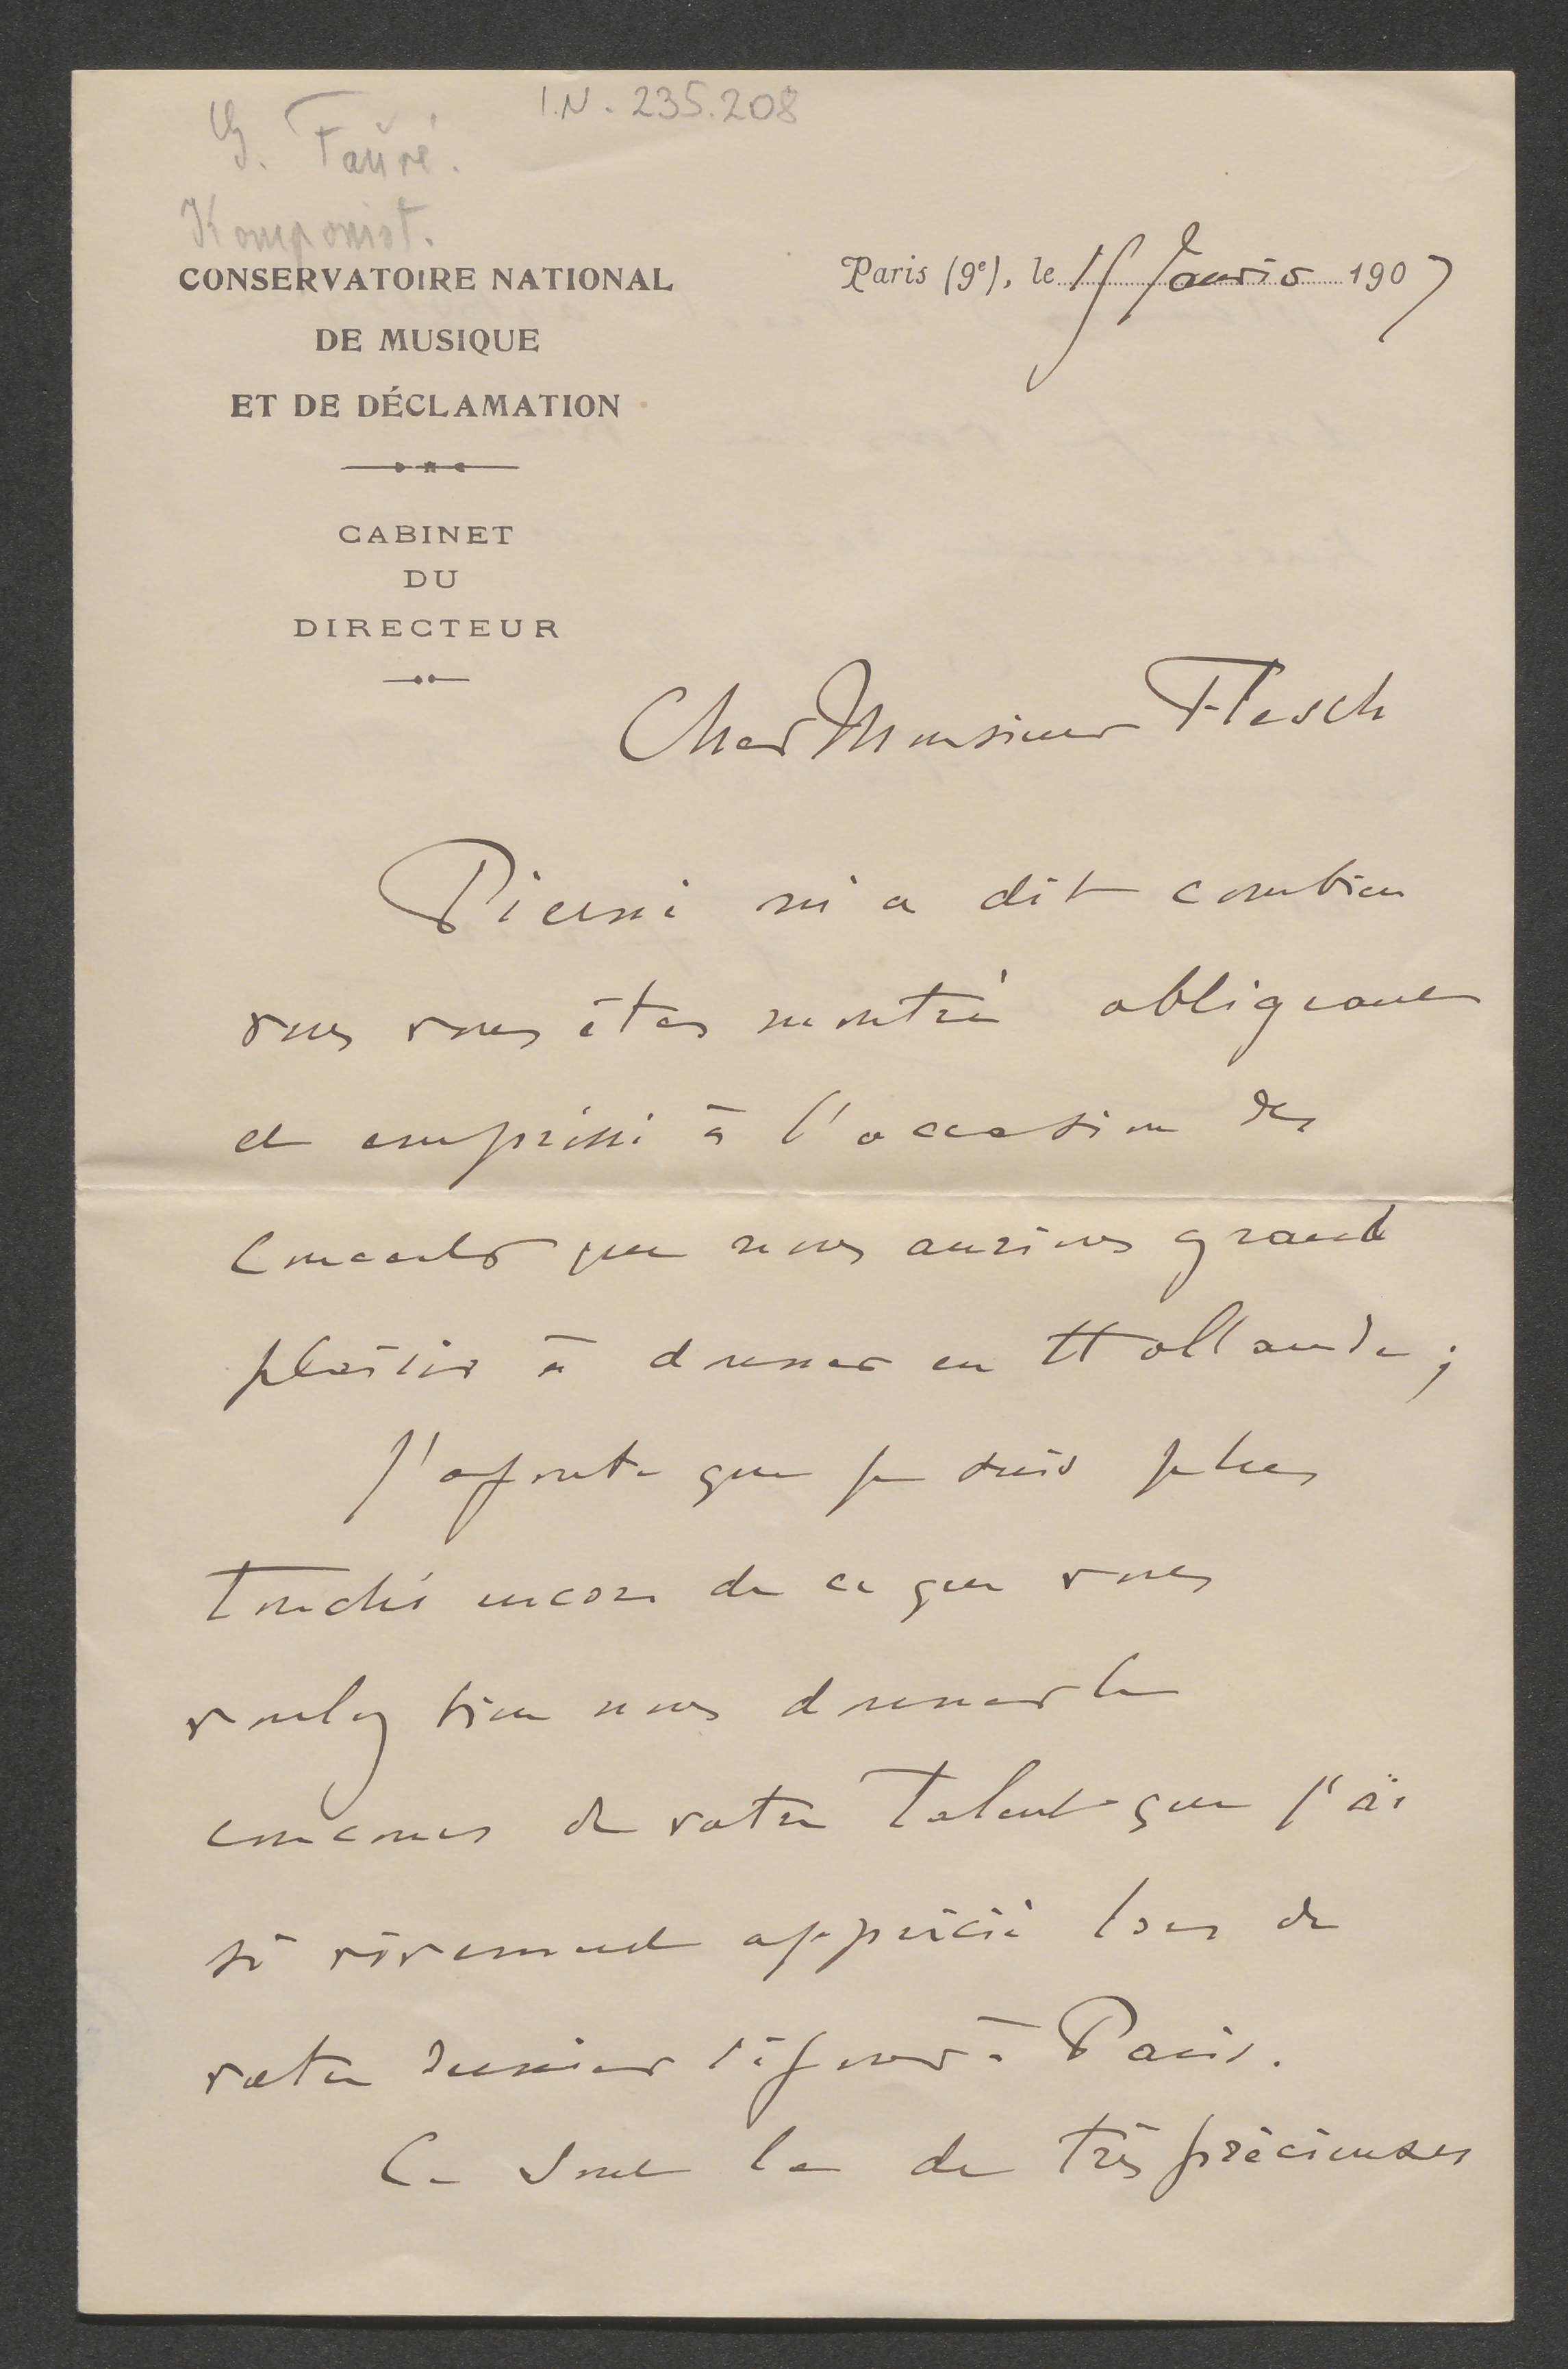 I.N. 235.208
G. Fauré.
Komponist.
CONSERVATOIRE NATIONAL
DE MUSIQUE
ET DE DÉCLAMATION
CABINET
DU
DIRECTEUR
Paris (9e), le 15 Janvier 1907
Cher Monsieur Flesch
Pierné m'a dit combien
vous vous êtes montré obligeant
et empressé à l'occasion des
Concerts que nous aurions grand
plaisir à donner en Hollande ;
J'ajoute que je suis plus
touché encore de ce que vous
voulez bien nous donner le
concours de votre talent que j'ai
si vivement apprécié lors de
votre dernier séjour à Paris.
Ce sont là de très précieuses